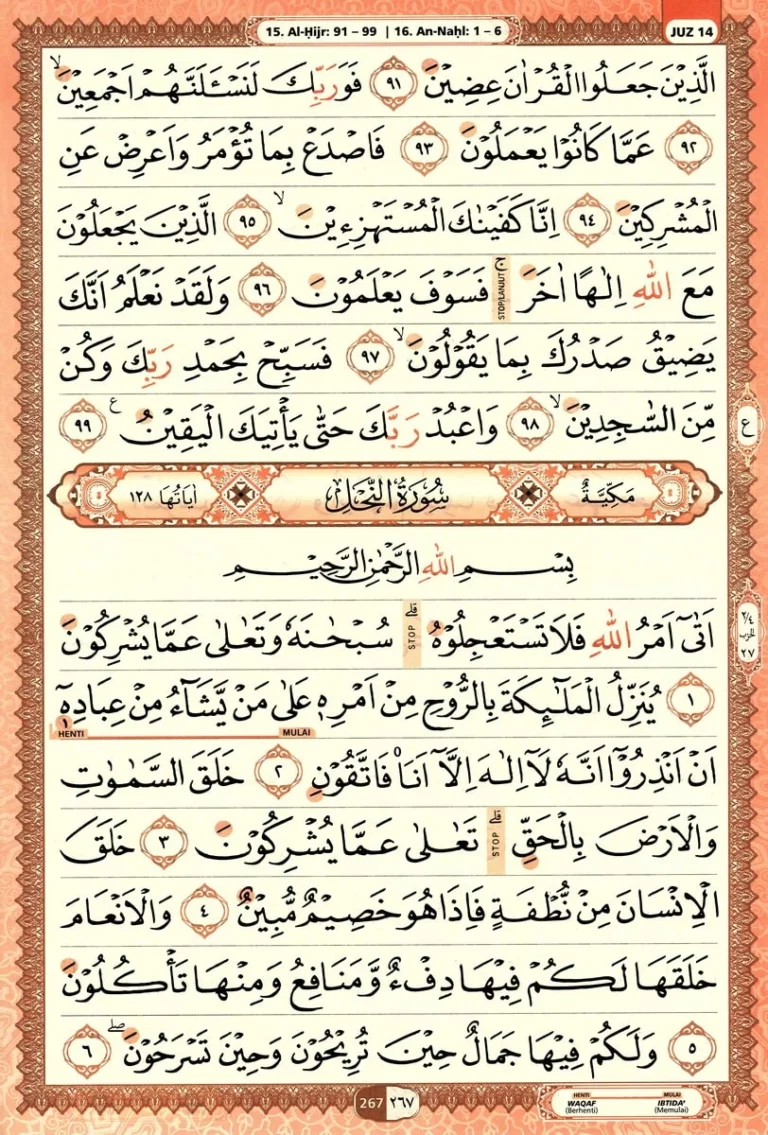 15. Al-Ḥijr: 91 – 99 | 16. An-Naḥl: 1 – 6
JUZ 14
الَّذِيْنَ جَعَلُوا الْقُرْاٰنَ عِضِيْنَ ٩١ فَوَرَبِّكَ لَنَسْـَٔلَنَّهُمْ اَجْمَعِيْنَۙ
٩٢ عَمَّا كَانُوْا يَعْمَلُوْنَ ٩٣ فَاصْدَعْ بِمَا تُؤْمَرُ وَاَعْرِضْ عَنِ
الْمُشْرِكِيْنَ ٩٤ اِنَّا كَفَيْنٰكَ الْمُسْتَهْزِءِيْنَۙ ٩٥ الَّذِيْنَ يَجْعَلُوْنَ
مَعَ اللّٰهِ اِلٰهًا اٰخَرَۚ STOP/LANJUT فَسَوْفَ يَعْلَمُوْنَ ٩٦ وَلَقَدْ نَعْلَمُ اَنَّكَ
يَضِيْقُ صَدْرُكَ بِمَا يَقُوْلُوْنَۙ ٩٧ فَسَبِّحْ بِحَمْدِ رَبِّكَ وَكُنْ
مِّنَ السّٰجِدِيْنَۙ ٩٨ وَاعْبُدْ رَبَّكَ حَتّٰى يَأْتِيَكَ الْيَقِيْنُ ع ٩٩
ع
مَكِّيَّةٌ سُوْرَةُ النَّحْلِ اٰيَاتُهَا ١٢٨
بِسْمِ اللّٰهِ الرَّحْمٰنِ الرَّحِيْمِ
اَتٰىٓ اَمْرُ اللّٰهِ فَلَا تَسْتَعْجِلُوْهُۗ STOP سُبْحٰنَهٗ وَتَعٰلٰى عَمَّا يُشْرِكُوْنَ
٢/٤ الحزب ٢٧
١ يُنَزِّلُ الْمَلٰۤىِٕكَةَ بِالرُّوْحِ مِنْ اَمْرِهٖ عَلٰى مَنْ يَّشَاۤءُ مِنْ عِبَادِهٖٓ
HENTI ١ MULAI
اَنْ اَنْذِرُوْٓا اَنَّهٗ لَآ اِلٰهَ اِلَّآ اَنَا۠ فَاتَّقُوْنِ ٢ خَلَقَ السَّمٰوٰتِ
وَالْاَرْضَ بِالْحَقِّۗ STOP تَعٰلٰى عَمَّا يُشْرِكُوْنَ ٣ خَلَقَ
الْاِنْسَانَ مِنْ نُّطْفَةٍ فَاِذَا هُوَ خَصِيْمٌ مُّبِيْنٌ ٤ وَالْاَنْعَامَ
خَلَقَهَا لَكُمْ فِيْهَا دِفْءٌ وَّمَنَافِعُ وَمِنْهَا تَأْكُلُوْنَ
٥ وَلَكُمْ فِيْهَا جَمَالٌ حِيْنَ تُرِيْحُوْنَ وَحِيْنَ تَسْرَحُوْنَۖ ٦
267 ٢٦٧
HENTI MULAI
WAQAF IBTIDA'
(Berhenti) (Memulai)